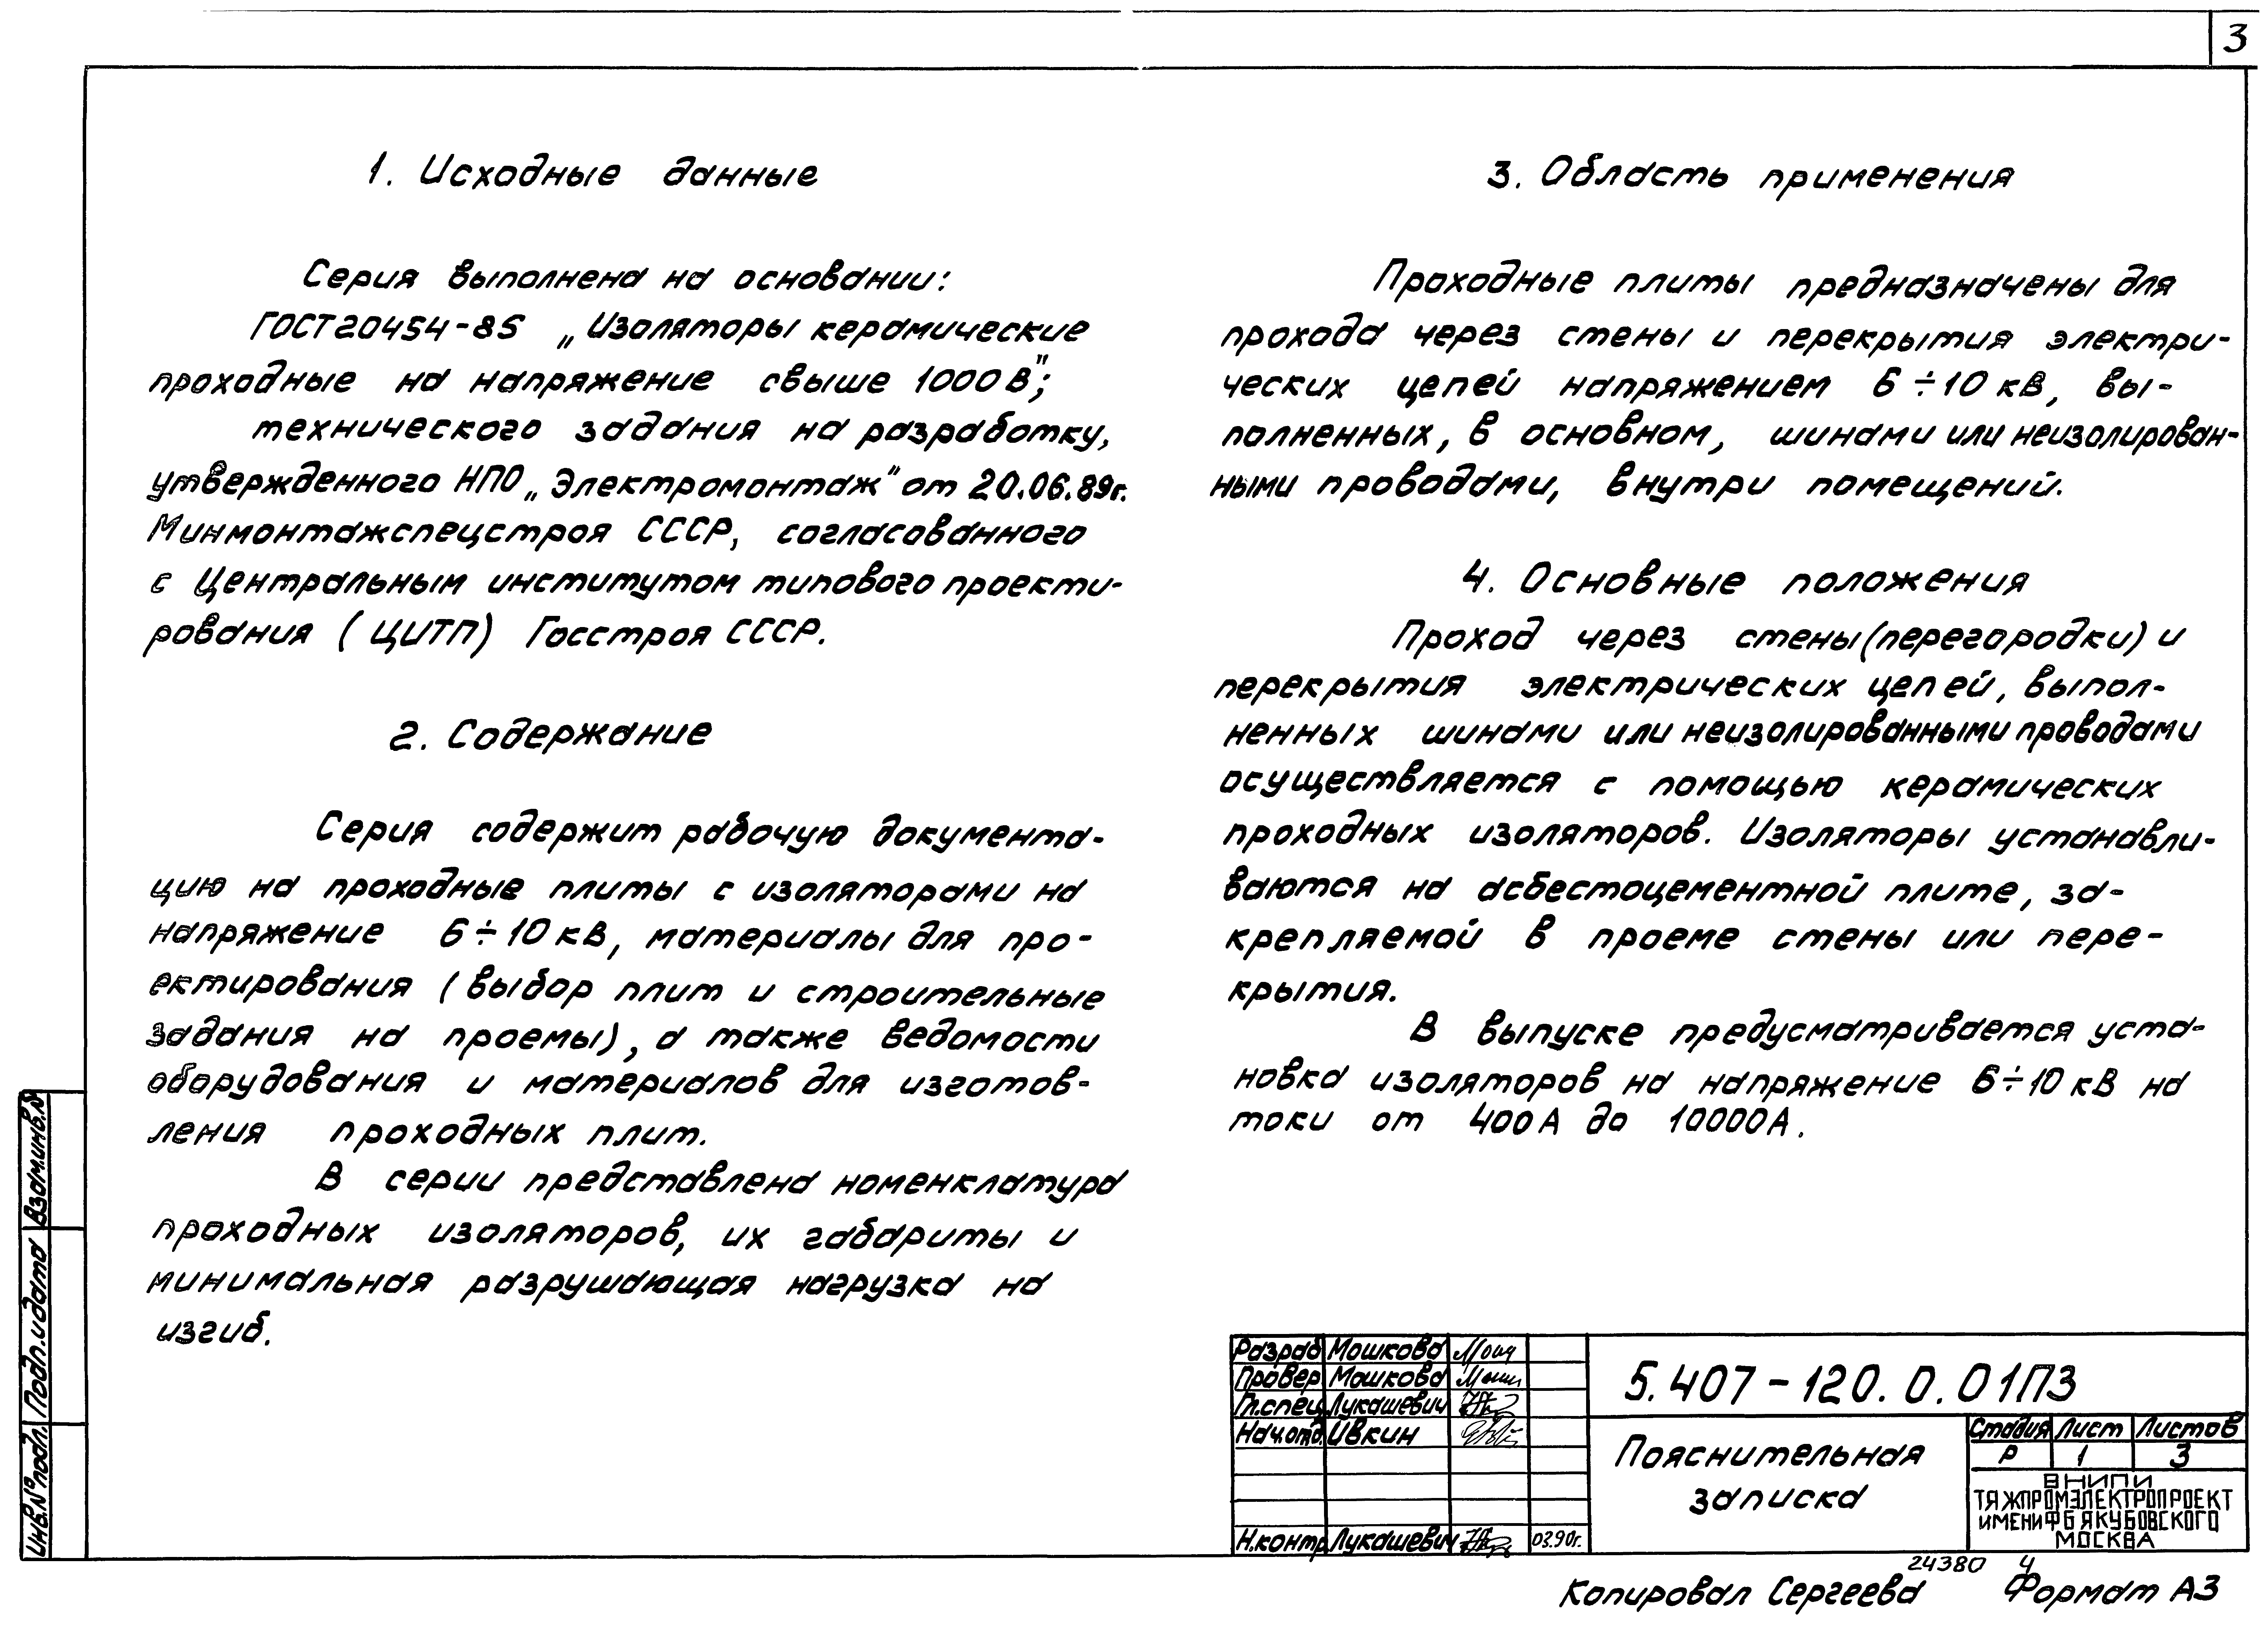 3
1. Исходные данные
Серия выполнена на основании:
ГОСТ 20454-85 „Изоляторы керамические
проходные на напряжение свыше 1000 В";
технического задания на разработку,
утвержденного НПО „Электромонтаж" от 20.06.89г.
Минмонтажспецстроя СССР, согласованного
с Центральным институтом типового проекти-
рования (ЦИТП) Госстроя СССР.
2. Содержание
Серия содержит рабочую документа-
цию на проходные плиты с изоляторами на
напряжение 6÷10 кВ, материалы для про-
ектирования (выбор плит и строительные
задания на проемы), а также ведомости
оборудования и материалов для изготов-
ления проходных плит.
В серии представлена номенклатура
проходных изоляторов, их габариты и
минимальная разрушающая нагрузка на
изгиб.
3. Область применения
Проходные плиты предназначены для
прохода через стены и перекрытия электри-
ческих цепей напряжением 6÷10 кВ, вы-
полненных, в основном, шинами или неизолирован-
ными проводами, внутри помещений.
4. Основные положения
Проход через стены (перегородки) и
перекрытия электрических цепей, выпол-
ненных шинами или неизолированными проводами
осуществляется с помощью керамических
проходных изоляторов. Изоляторы устанавли-
ваются на асбестоцементной плите, за-
крепляемой в проеме стены или пере-
крытия.
В выпуске предусматривается уста-
новка изоляторов на напряжение 6÷10 кВ на
токи от 400 А до 10000 А.
Взам.инв.№
Подп.и дата
Инв.№ подл.
Разраб Мошкова
Провер Мошкова
Гл.спец Лукашевич
Нач.отд. Ивкин
Н.контр Лукашевич 03.90г.
5.407-120.0.01ПЗ
Пояснительная
записка
Стадия Лист Листов
Р 1 3
ВНИПИ
ТЯЖПРОМЭЛЕКТРОПРОЕКТ
ИМЕНИ Ф Б ЯКУБОВСКОГО
МОСКВА
24380 4
Копировал Сергеева Формат А3